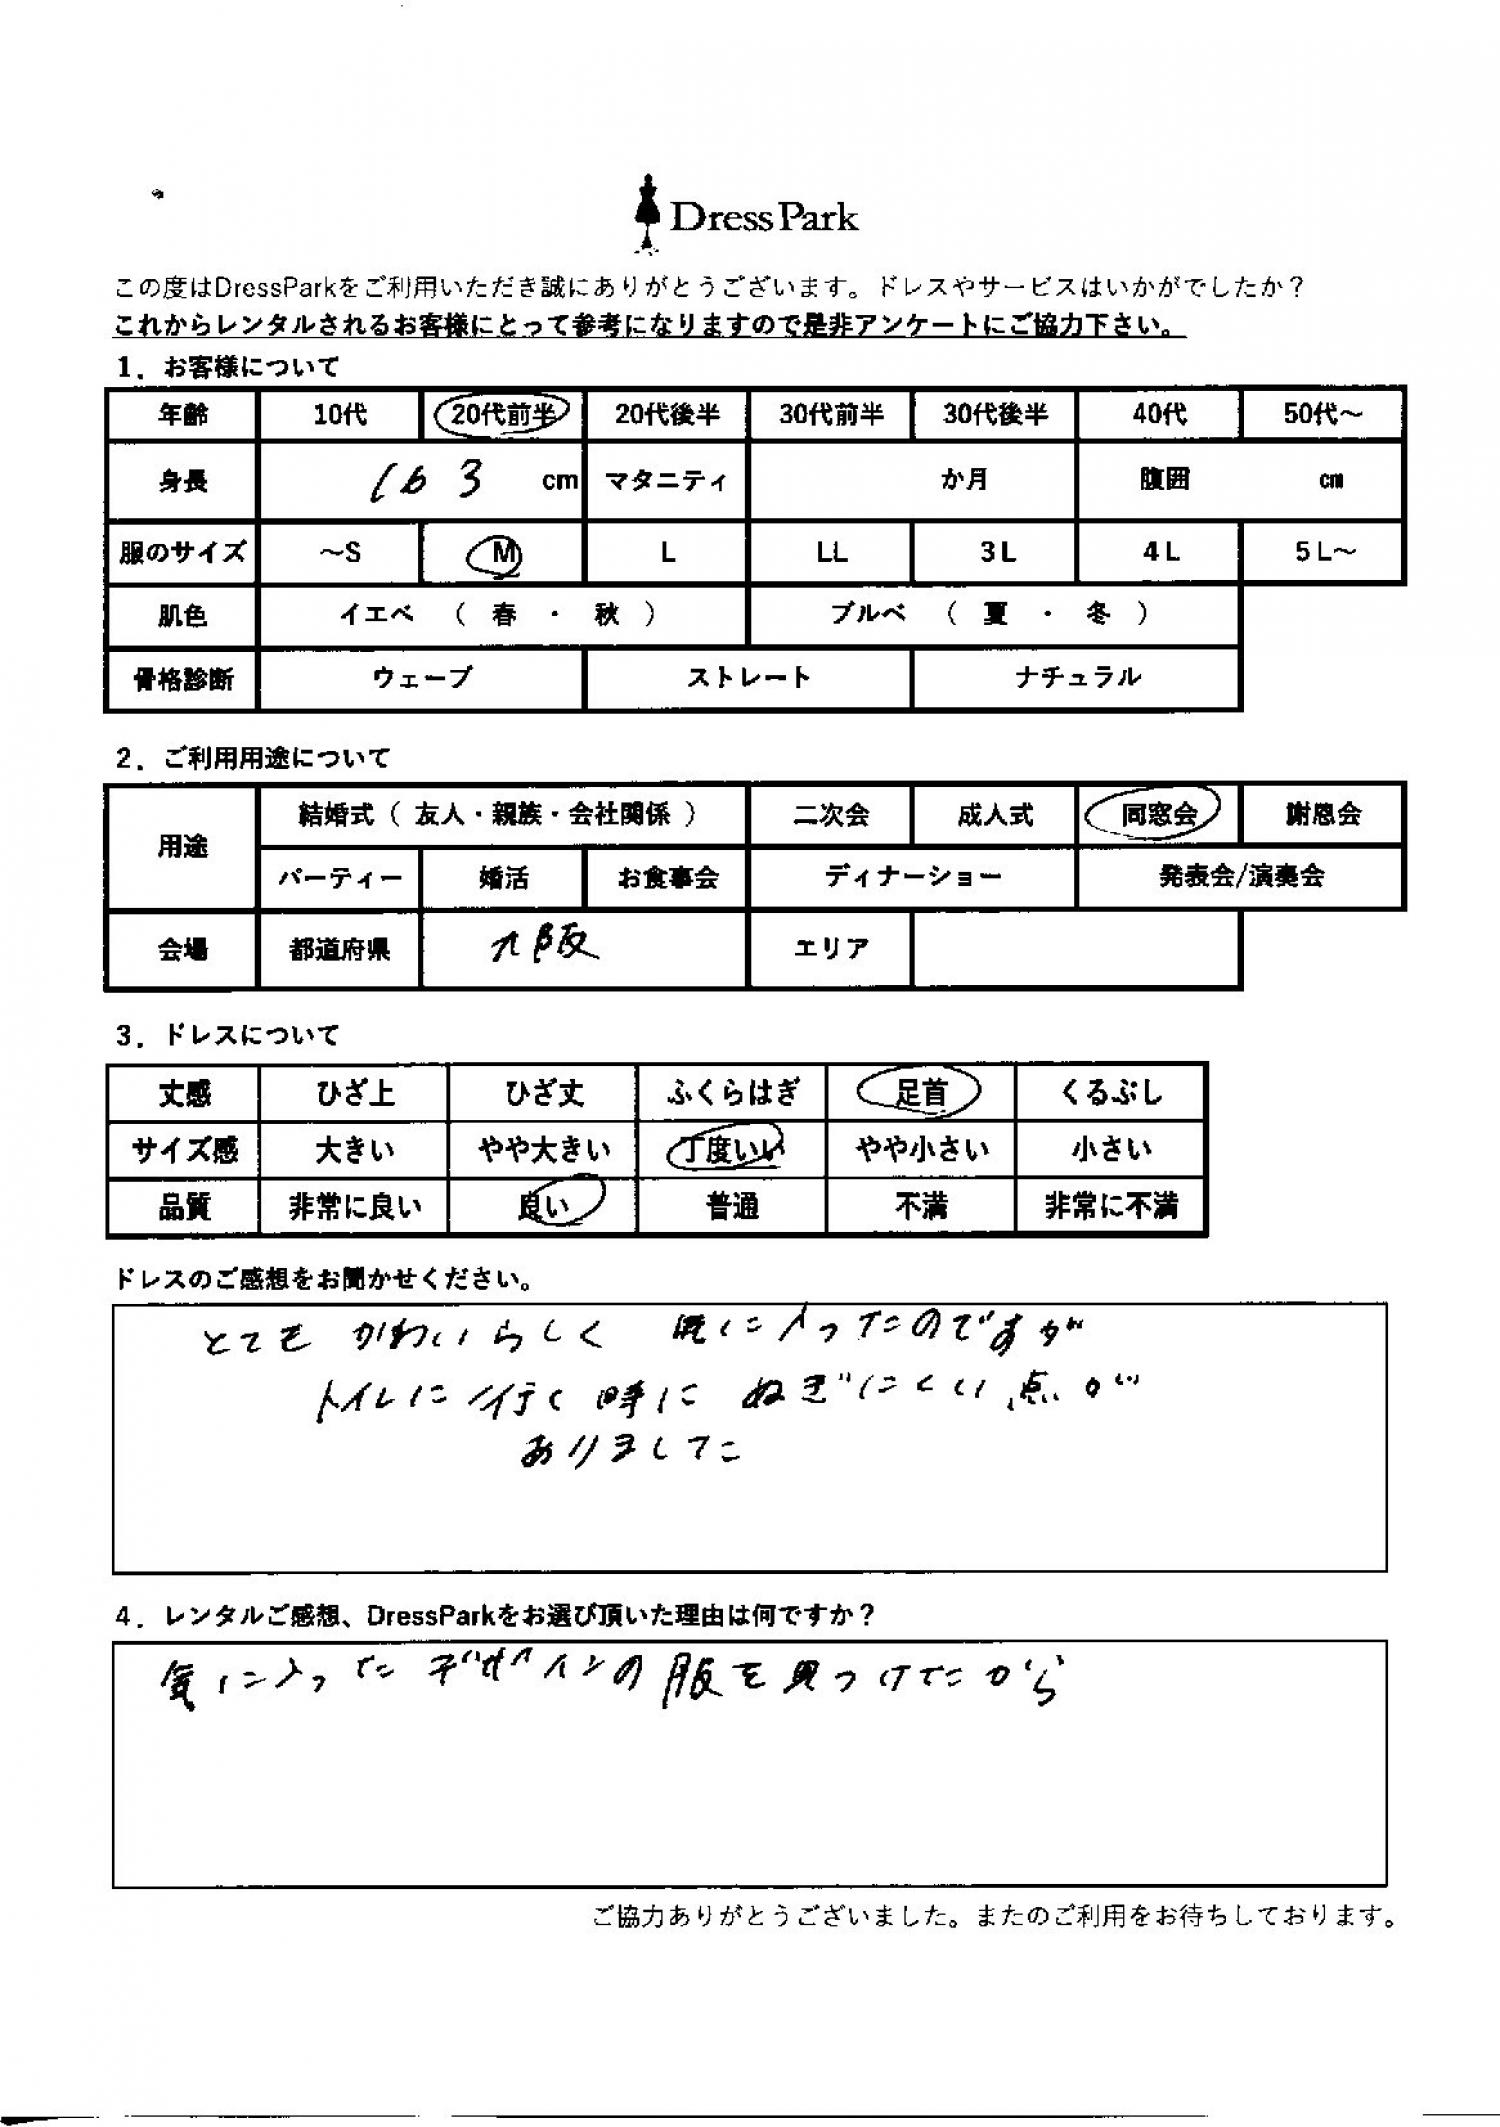 Dress Park
この度はDressParkをご利用いただき誠にありがとうございます。ドレスやサービスはいかがでしたか？
これからレンタルされるお客様にとって参考になりますので是非アンケートにご協力下さい。
1．お客様について
年齢 10代 20代前半 20代後半 30代前半 30代後半 40代 50代～
身長 163 cm マタニティ か月 腹囲 cm
服のサイズ ～S M L LL 3L 4L 5L～
肌色 イエベ （ 春 ・ 秋 ） ブルベ （ 夏 ・ 冬 ）
骨格診断 ウェーブ ストレート ナチュラル
2．ご利用用途について
用途 結婚式（ 友人・親族・会社関係 ） 二次会 成人式 同窓会 謝恩会
パーティー 婚活 お食事会 ディナーショー 発表会/演奏会
会場 都道府県 大阪 エリア
3．ドレスについて
丈感 ひざ上 ひざ丈 ふくらはぎ 足首 くるぶし
サイズ感 大きい やや大きい 丁度いい やや小さい 小さい
品質 非常に良い 良い 普通 不満 非常に不満
ドレスのご感想をお聞かせください。
とてもかわいらしく 気に入ったのですが
トイレに行く時に ぬぎにくい点が
ありました
4．レンタルご感想、DressParkをお選び頂いた理由は何ですか？
気に入ったデザインの服を見つけたから
ご協力ありがとうございました。またのご利用をお待ちしております。